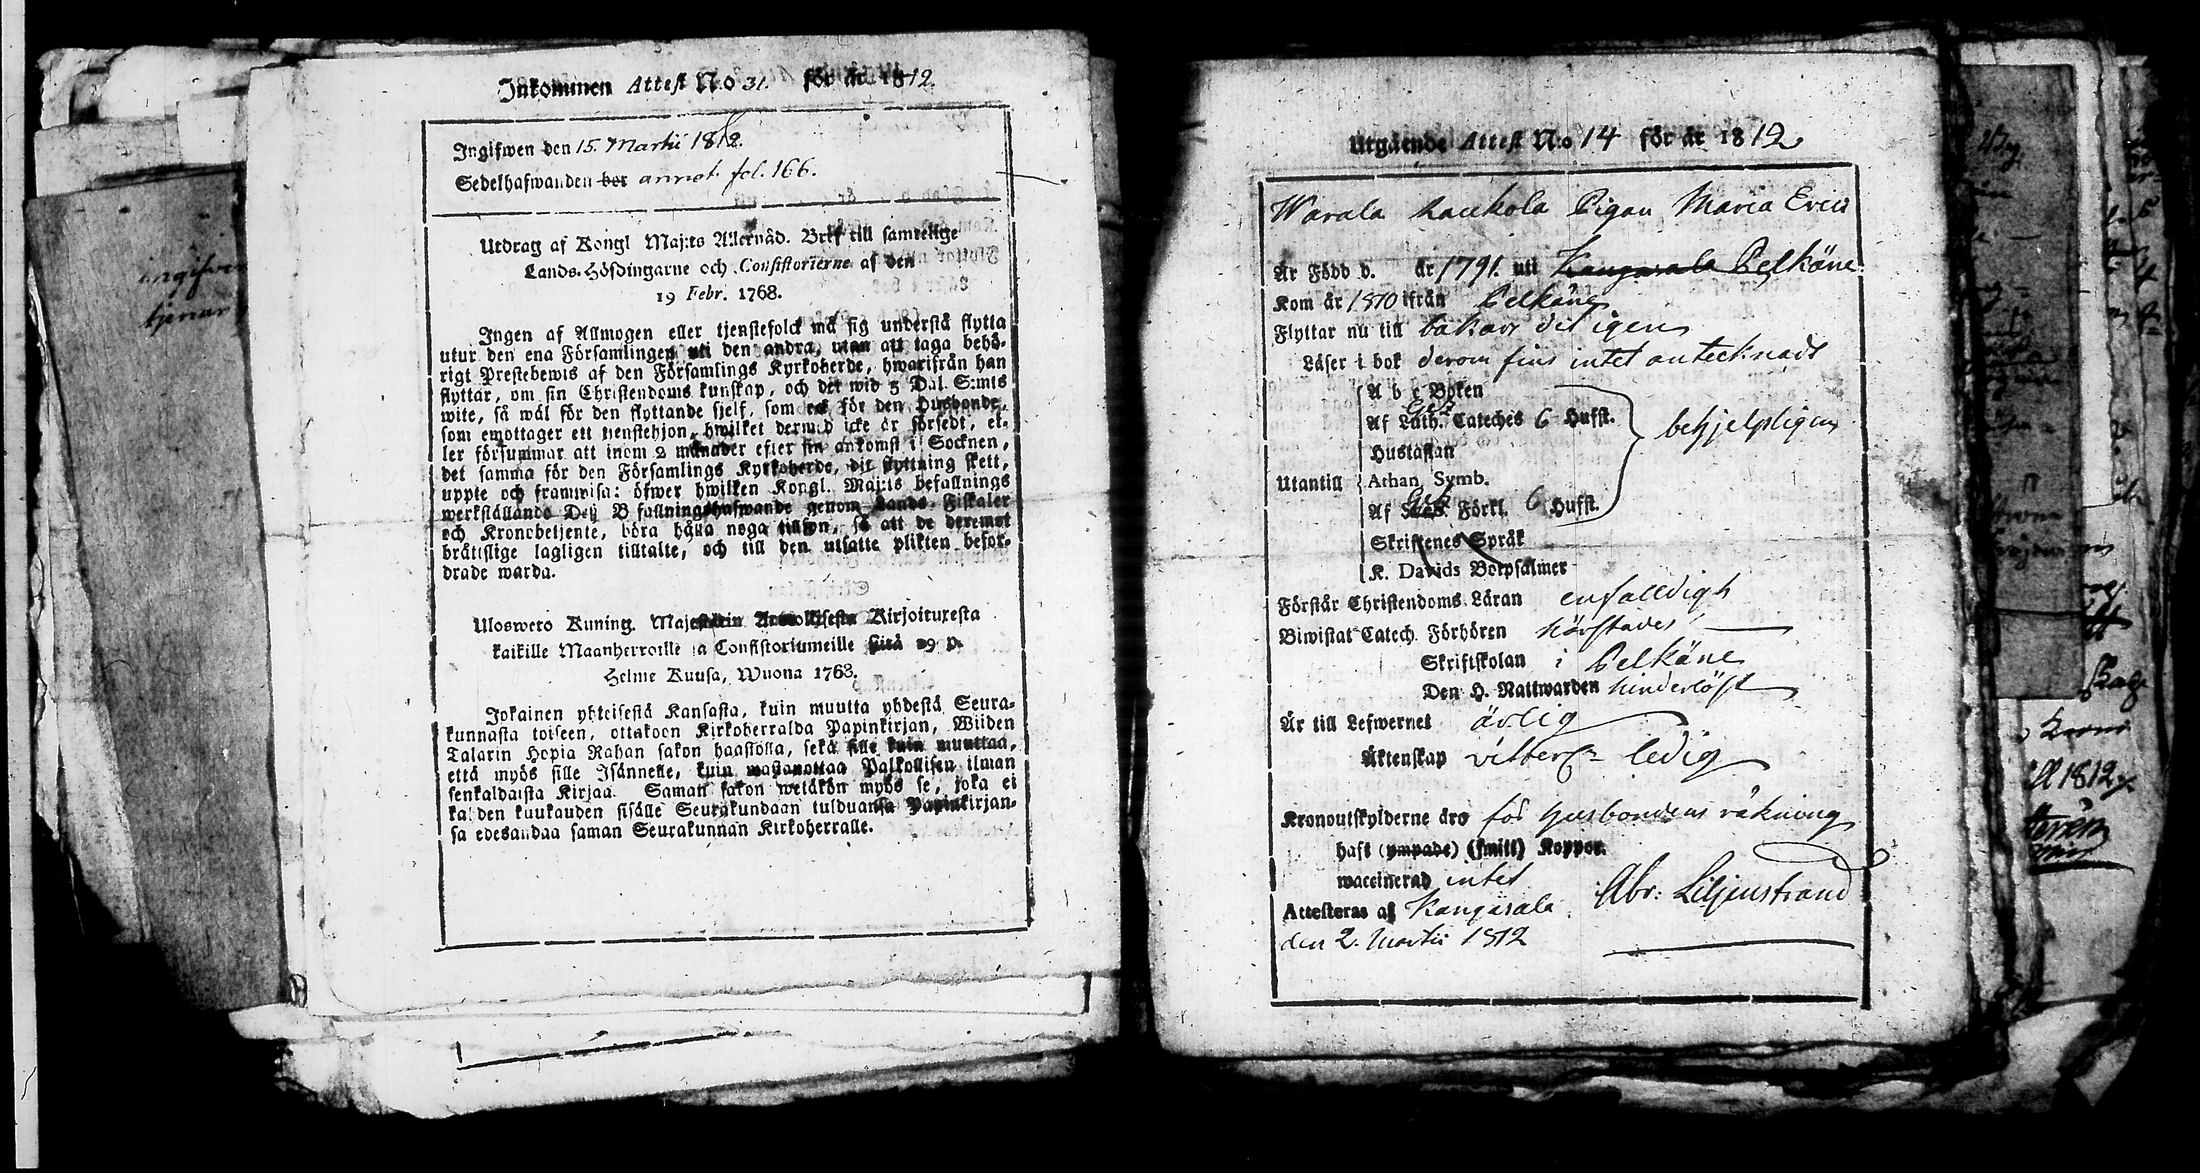 Inkommen Attest N:o 31. för år 1812.
Ingifwen den 15. Martii 1812.
Sedelhafwanden bor annot. fol. 166.
Utdrag af Kongl Maj:ts Allernåd. Bref till samtelige
Lands-Höfdingarne och Consistorierne af den
19 Febr. 1768.
Ingen af Allmogen eller tjenstefolck må sig understå flytta
utur den ena Församlingen uti den andra, utan att taga behö-
rigt Prestebewis af den Församlings Kyrkoherde, hwarifrån han
flyttar, om sin Christendoms kunskap, och det wid 5 Dal. S:mts
wite, så wäl för den flyttande sjelf, som ock för den Husbonde,
som emottager ett tienstehjon, hwilket dermed icke är försedt, el-
ler försummar att inom 2 månader efter sin ankomst i Socknen,
det samma för den Församlings Kyrkoherde, dit flyttning skett,
uppte och framwisa: öfwer hwilken Kongl. Maj:ts befallnings
werkställande Desz Befallningshafwande genom Lands-Fiskaler
och Kronobetjente, böra hålla noga tillsyn, så att de deremot
brättslige lagligen tilltalte, och till den utsatte plikten befor-
drade warda.
Uloswero Kuning. Majestetin Armollisesta Kirjoituxesta
kaikille Maanherroille ja Consistoriumeille siitä 19 p.
Helme Kuusa, Wuona 1768.
Jokainen yhteisestä Kansasta, kuin muutta yhdestä Seura-
kunnasta toiseen, ottakoon Kirkoherralda Papinkirjan, Wiiden
Talarin Hopia Rahan sakon haastolla, sekä sille kuin muuttaa,
että myös sille Isännelle, kuin wastanottaa Palkollisen ilman
senkaldaista Kirjaa. Saman sakon wetäkön myös se, joka ei
kahden kuukauden sisälle Seurakundaan tulduansa Papinkirjan-
sa edesandaa saman Seurakunnan Kirkoherralle.
Utgående Attest N:o 14 för år 1812
Warala Kaukola Pigan Maria Erics
Är Född d. år 1791. uti Kangasala Pelkäne
Kom år 1810 ifrån Pelkäne
Flyttar nu till bakar dit igen
Läser i bok derom fins intet antecknadt
A b c Boken
Af Luth. Cateches 6 Hufst.
Hustaflan
behjelpligen
Utantill Athan. Symb.
Af Förkl. 6 Hufst.
Skriftenes Språk
K. Davids Botpsalmer
Förstår Christendoms Läran enfalldigt
Biwistat Catech. Förhören
Skriftskolan i Pelkäne
Den H. Nattwarden hinderlöst
Är till Lefwernet ärlig
Äktenskap ledig
Kronoutskylderne äro för husbondens räkning
haft (ympade) (smitt) Koppor.
waccinerad intet
Attesteras af Kangasala Abr: Liljenstrand
den 2. Martii 1812